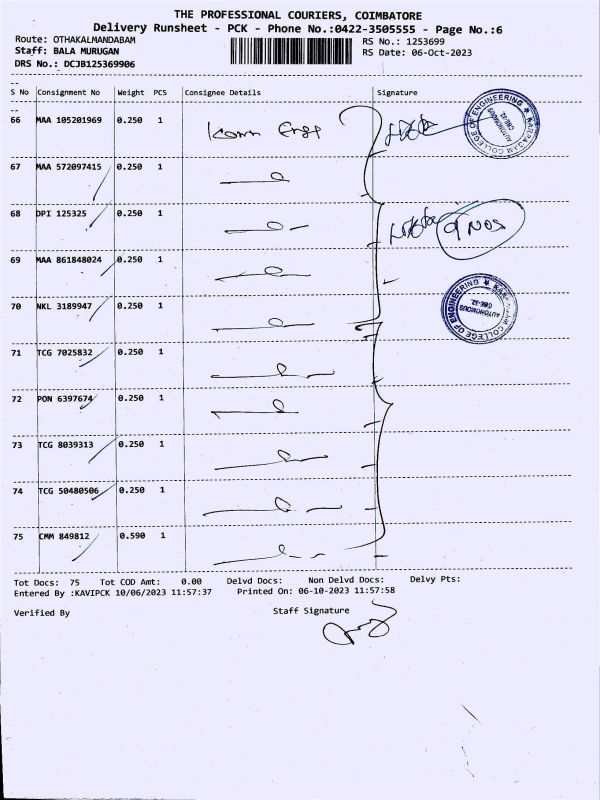 THE PROFESSIONAL COURIERS, COIMBATORE
Delivery Runsheet - PCK - Phone No.:0422-3505555 - Page No.:6
Route: OTHAKALMANDABAM
RS No.: 1253699
Staff: BALA MURUGAN
RS Date: 06-Oct-2023
DRS No.: DCJB125369906
S No Consignment No Weight PCS Consignee Details Signature
66 MAA 105201969 0.250 1
KARPAGAM COLLEGE OF ENGINEERING
AUTONOMOUS
CBE-32.
67 MAA 572097415 0.250 1
68 DPI 125325 0.250 1 9 NOS
69 MAA 861848024 0.250 1
70 NKL 3189947 0.250 1
KARPAGAM COLLEGE OF ENGINEERING
AUTONOMOUS
CBE-32.
71 TCG 7025832 0.250 1
72 PON 6397674 0.250 1
73 TCG 8039313 0.250 1
74 TCG 50480506 0.250 1
75 CMM 849812 0.590 1
Tot Docs: 75 Tot COD Amt: 0.00 Delvd Docs: Non Delvd Docs: Delvy Pts:
Entered By :KAVIPCK 10/06/2023 11:57:37 Printed On: 06-10-2023 11:57:58
Verified By Staff Signature